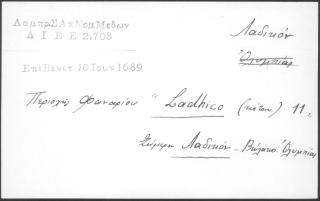 ΛαμπρΣΑπΝομΜεθων
ΔΙΕΕ 2.708
Λαδικόν
Ὀλυμπίας
ΕπιΒενετ 10 Ιουν 1689
Περιοχή Φαναρίου "Ladhico (κάτοικ) 11"
Σήμερα Λαδικόν - Βώλακος Ὀλυμπίας